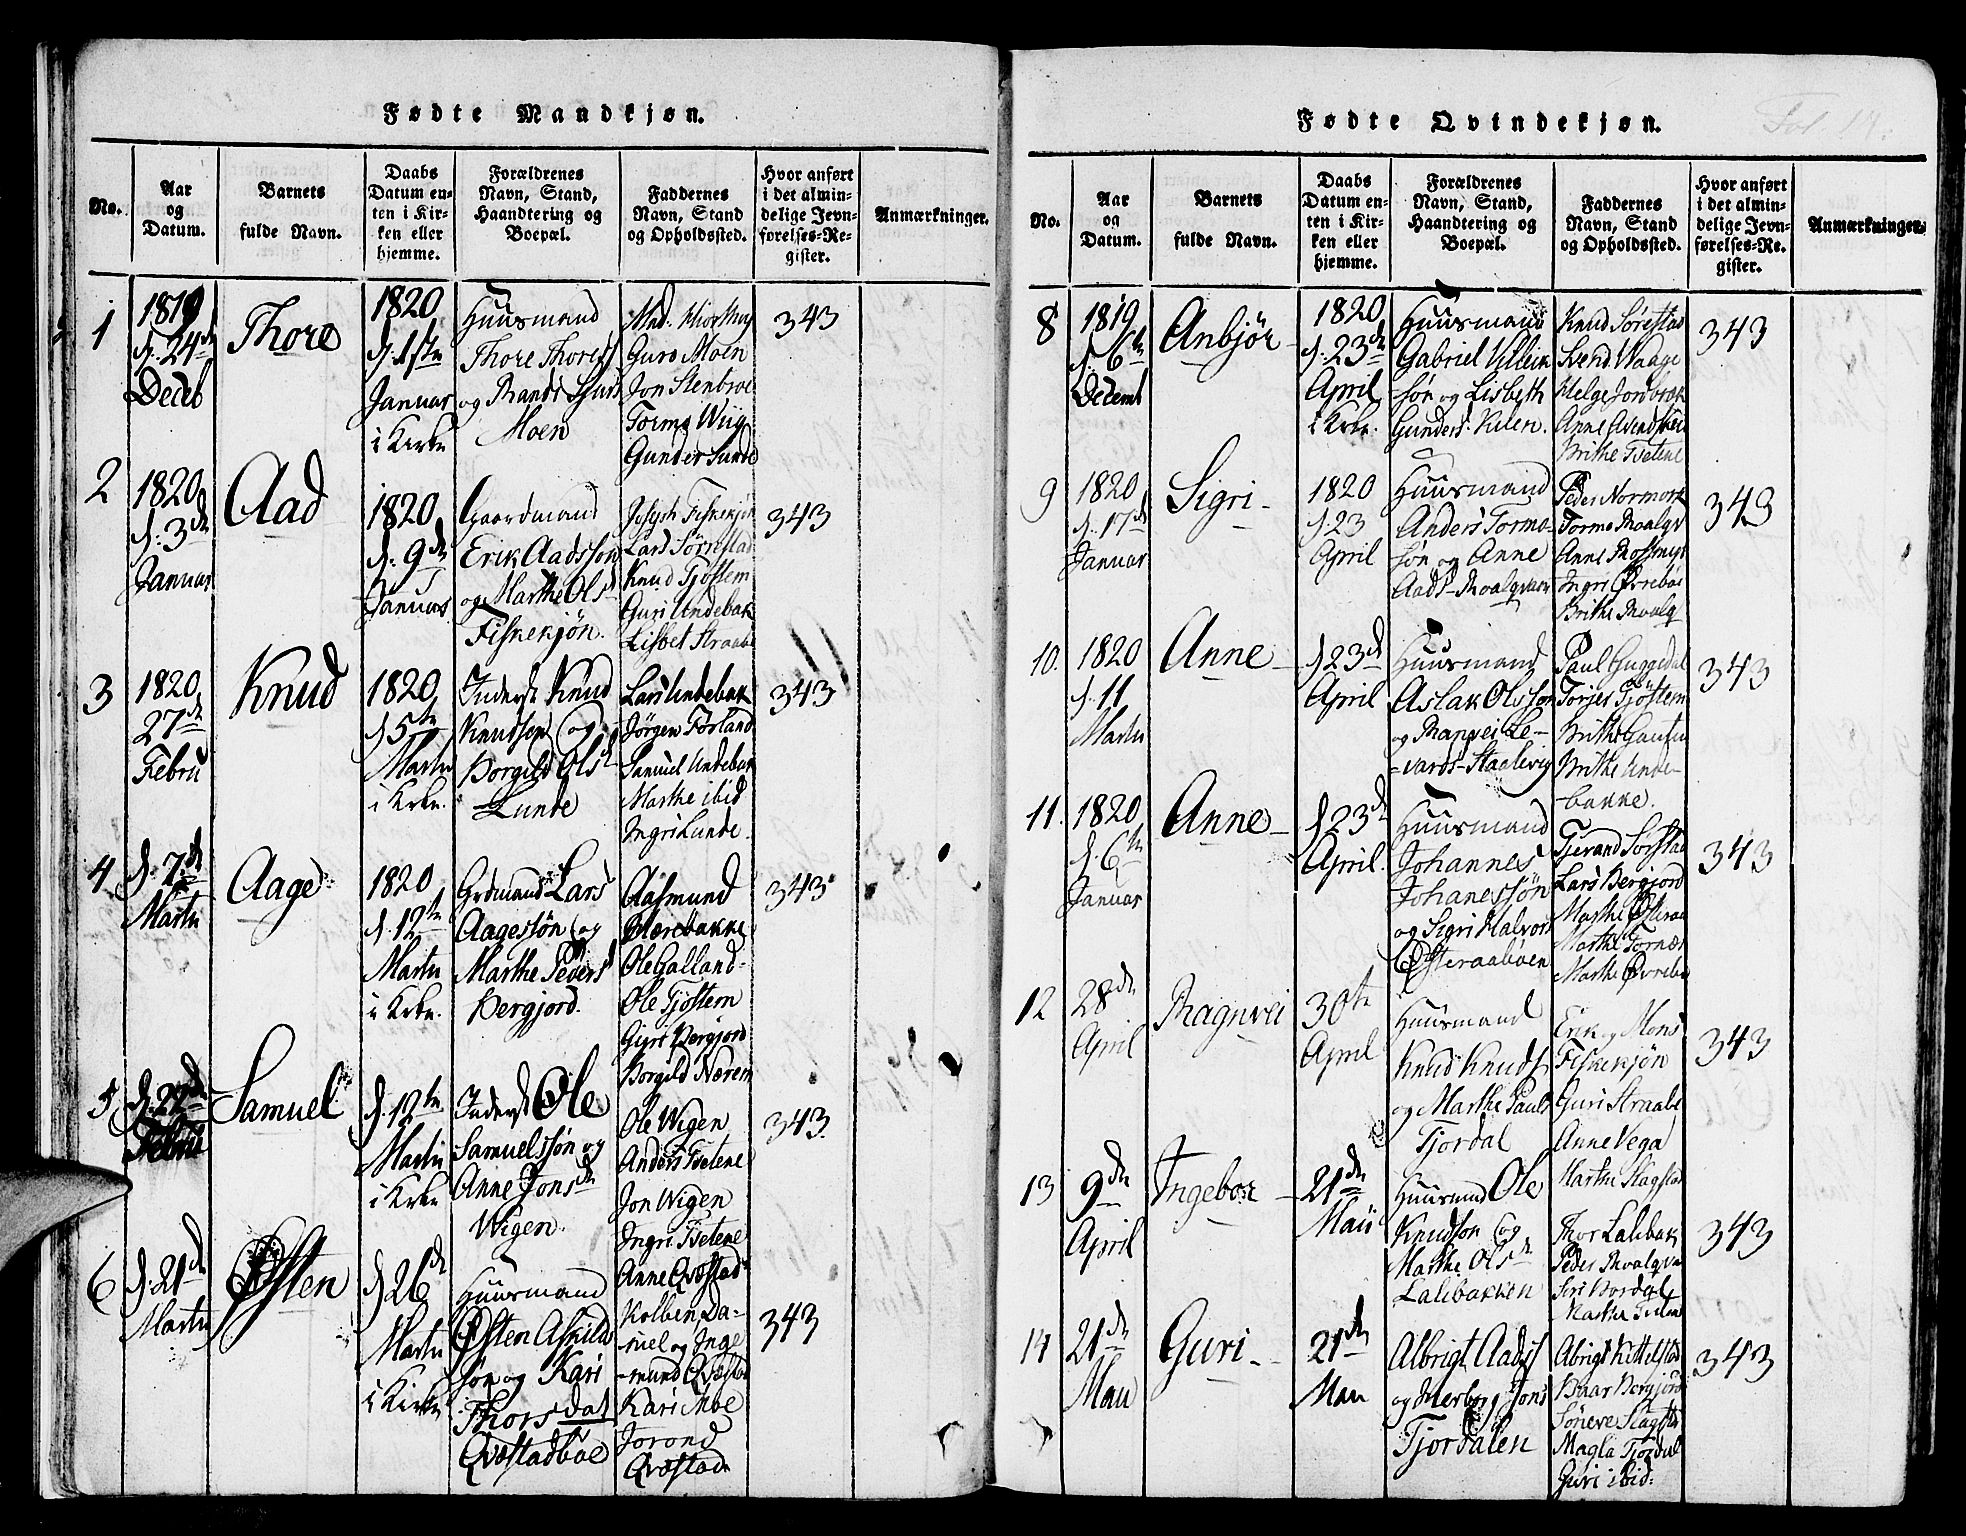 Fødte Mandkjøn.
No.
Aar
og
Datum.
Barnets
fulde Navn.
Daabs
Datum en-
ten i Kir-
ken eller
hjemme.
Forældrenes
Navn, Stand,
Haandtering og
Boepæl.
Faddernes
Navn, Stand
og Opholdssted.
Hvor anført
i det almin-
delige Jevn-
førelses-Re-
gister.
Anmærkninger.
1
1819
d. 24de
Deceb
Thore
1820
d. 1ste
Januar
i Kirke
Huusmand
Thore Thoress
og
Moen
Guro Moen
Jon Stenbroe
Tormo Wiig
Gunder Sunde
343
2
1820
d. 3de
Januar
Aad
1820
d. 9de
Januar
Gaardmand
Erik Aadssøn
og Marthe Olsd
Fiskekjøn.
Lars Sørrestad
Knud Tjøstem
Guri Undebak
Lisbet Straabe
343
3
1820
27de
Febru
Knud
1820
d 5te
Martii
i Krke.
Inderst Knud
Knudsen og
Borgild Olsd
Lunde
Lars Undebak
JørgenFørland
Samuel Undebak
Marthe ibid
Ingri Lunde.
343
4
d. 7de
Martii
Aage
1820
d. 12te
Martii
i Krke.
Grdmand Lars
Aagessøn og
Marthe Peders
Bergjord.
Aasmund
Mærebakke
Ole Galland-
Ole Tjøstem
Guri Bergjord
Borgild Nærem
343
5
d. 22de
Febru
Samuel
d. 12te
Martii
i Krke
Inderst Ole
Samuelssøn og
Anne Jonsdr
Wigen.
Ole Wigen
Anders Tvetene
Jon Wigen
Ingri Tvetene
Anne Qvøstad
343.
6
d. 21de
Martii
Østen
d 26de
Martii
i Kirke
Huusmand
Østen Askilds
søn og Kari
Thorsdat
Qvøstadbøe
Kolben, Da-
niel og Inge
-mund Qvøstad
Kari Moe
Jorond
Qvøstad
343
Fødte Qvindekjøn.
Fol. 17.
No.
Aar
og
Datum.
Barnets
fulde Navn.
Daabs
Datum en-
ten i Kir-
ken eller
hjemme.
Forældrenes
Navn, Stand,
Haandtering og
Boepæl.
Faddernes
Navn, Stand
og Opholdssted.
Hvor anført
i det almin-
delige Jevn-
førelses-Re-
gister.
Anmærkninger.
8
1819
d. 6te
Decemb
Anbjør
1820
d. 23de
April
i Krke.
Huusmand
Gabriel Villum
søn og Lisbeth
Gunders Kilen.
Knud Sørestad
Svend Waage
Helge Jonsbrek
Brithe Tvetene
343
9
1820
d. 17de
Januar
Sigri
1820
d. 23
April
Huusmand
Anders Tormo-
søn og Anne
Aads Roalqvam
Peder Normork
Tormo Roalqv
Anne Rossmyr
Ingri Øvrebøe
Brithe Roalq
343
10.
1820
d. 11
Martii
Anne
d 23de
April
Huusmand
Aslak Olssøn
og Ranvei Le-
=vards-Staalevig
Paul Guggedal
Torjer Tjøstem
Brithe
Brithe Unde-
bakke.
343
11.
1820
d. 6te
Januar
Anne
d 23de
April.
Huusmand
Johannes
Johanessøn
og Sigri Halvors
Østeraabøen
Tjerand Sørstad
Lars Bergjord
Marthe Østeraa
Marthe Tornæs
Marthe Øvrebøe
343
12
28de
April
Ragnvei
30te
April
Huusmand
Knud Knuds
og Marthe Pauls
Tjordal
Erik og Mons
Fiskekjøn
Guri Straabe
Anne Vega
Marthe Slagstad
343
13
9de
April
Ingebor
21de
Maii
Huusmnd Ole
Knudsøn og
Marthe Olsdr
Lalibakken
Thor Lalibak
Peder Roalqva
Siri Bordal
343
14
21de
Maii
Guri
21de
Maii
Albrigt Aads
og Inerborg Jons
Tjordalen
Abrigt Kittelstad
Baar Bergjord
Søneve Slagstad
Magla Tjordal
Guri ibid.
343